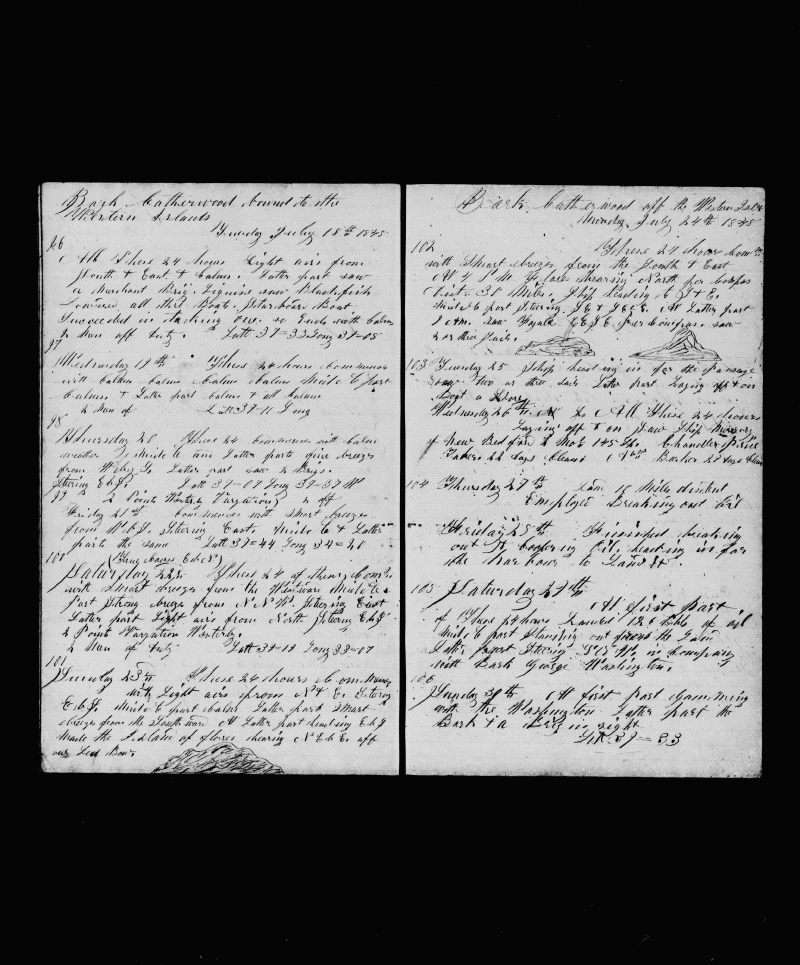 Bark Catherwood bound to the
Western Islands
Tuesday July 18th 1848
96
All These 24 hours Light airs from
South & East & Calms. Latter part saw
a merchant Brig. Likewise saw Blackfish
Lowered all the Boats. Starboard Boat
Succeeded in taking one. so Ends with Calms
2 Men off Duty. Latt 37=33 Long 39=08
97
Wednesday 19th These 24 hours Commences
with calms calms calms calms Middle part
Calms & Latter part calms & all calms
2 Men of Latt 37-11 Long
98
Thursday 20 These 24 commences with calm
weather Middle and Latter parts fine breezes
from W by S. Latter part saw 2 Brigs.
Stering E by S. Latt 37-07 Long 37-37 W
99 2 Point Westerly Variation 2 off
Friday 21st Commences with Smart breeze
from W by S. Stering East. Middle & Latter
parts the same Latt 37=44 Long 34=20
100
Saturday 22 These 24 of Strong Comes
with Smart breezes from the Westward Middle
part Strong breeze from N N W. Stering East
Latter part Light airs from North Stering E by S
2 Point Variation Westerly.
2 Men of Duty Latt 39-19 Long 33-07
101
Sunday 23rd These 24 hours Commences
with Light airs from N & E. Stering
E by S. Middle part calms Latter part Smart
breezes from the Southward At Latter part heading E by S
made the Island of Flores bearing N E by E. off
our Lee Bow.
Bark Catherwood off the Western Isles
Monday July 24th 1848
102 These 24 hours Comes
with Smart breezes from the South & East
At 4 PM Flores bearing North per Compas
Dist. 30 Miles. Ship heading E
Middle part Stering S E & S E by E. At Latter part
1 AM. saw Fayale E by S per Compass. saw
2 or three Sails.
103 Tuesday 25 Ship heading in for the passage
saw two or three Sails Later part Laying off & on
Boat a Shore
Wednesday 26th All These 24 hours
Laying off & on Saw Ship
of New Bedford 2 Mos 145 Chandler Price
22 days Clean Barker 22 days Clean
104 Thursday 27th 10 Miles distant
Employed Breaking out Oil
Friday 28th Finished breaking
out & coopering Oil, heading in for
the harbour to Land it.
105 Saturday 29th
At first part
of These 24 hours Landed 126 bbls of oil
Middle part Standing out from the Land
Latter part Stering in Company
with Bark George Washington.
106
Sunday 30th At first part Gamming
with the Washington Latter part the
Bark & a Brig in sight
Latt 37=33